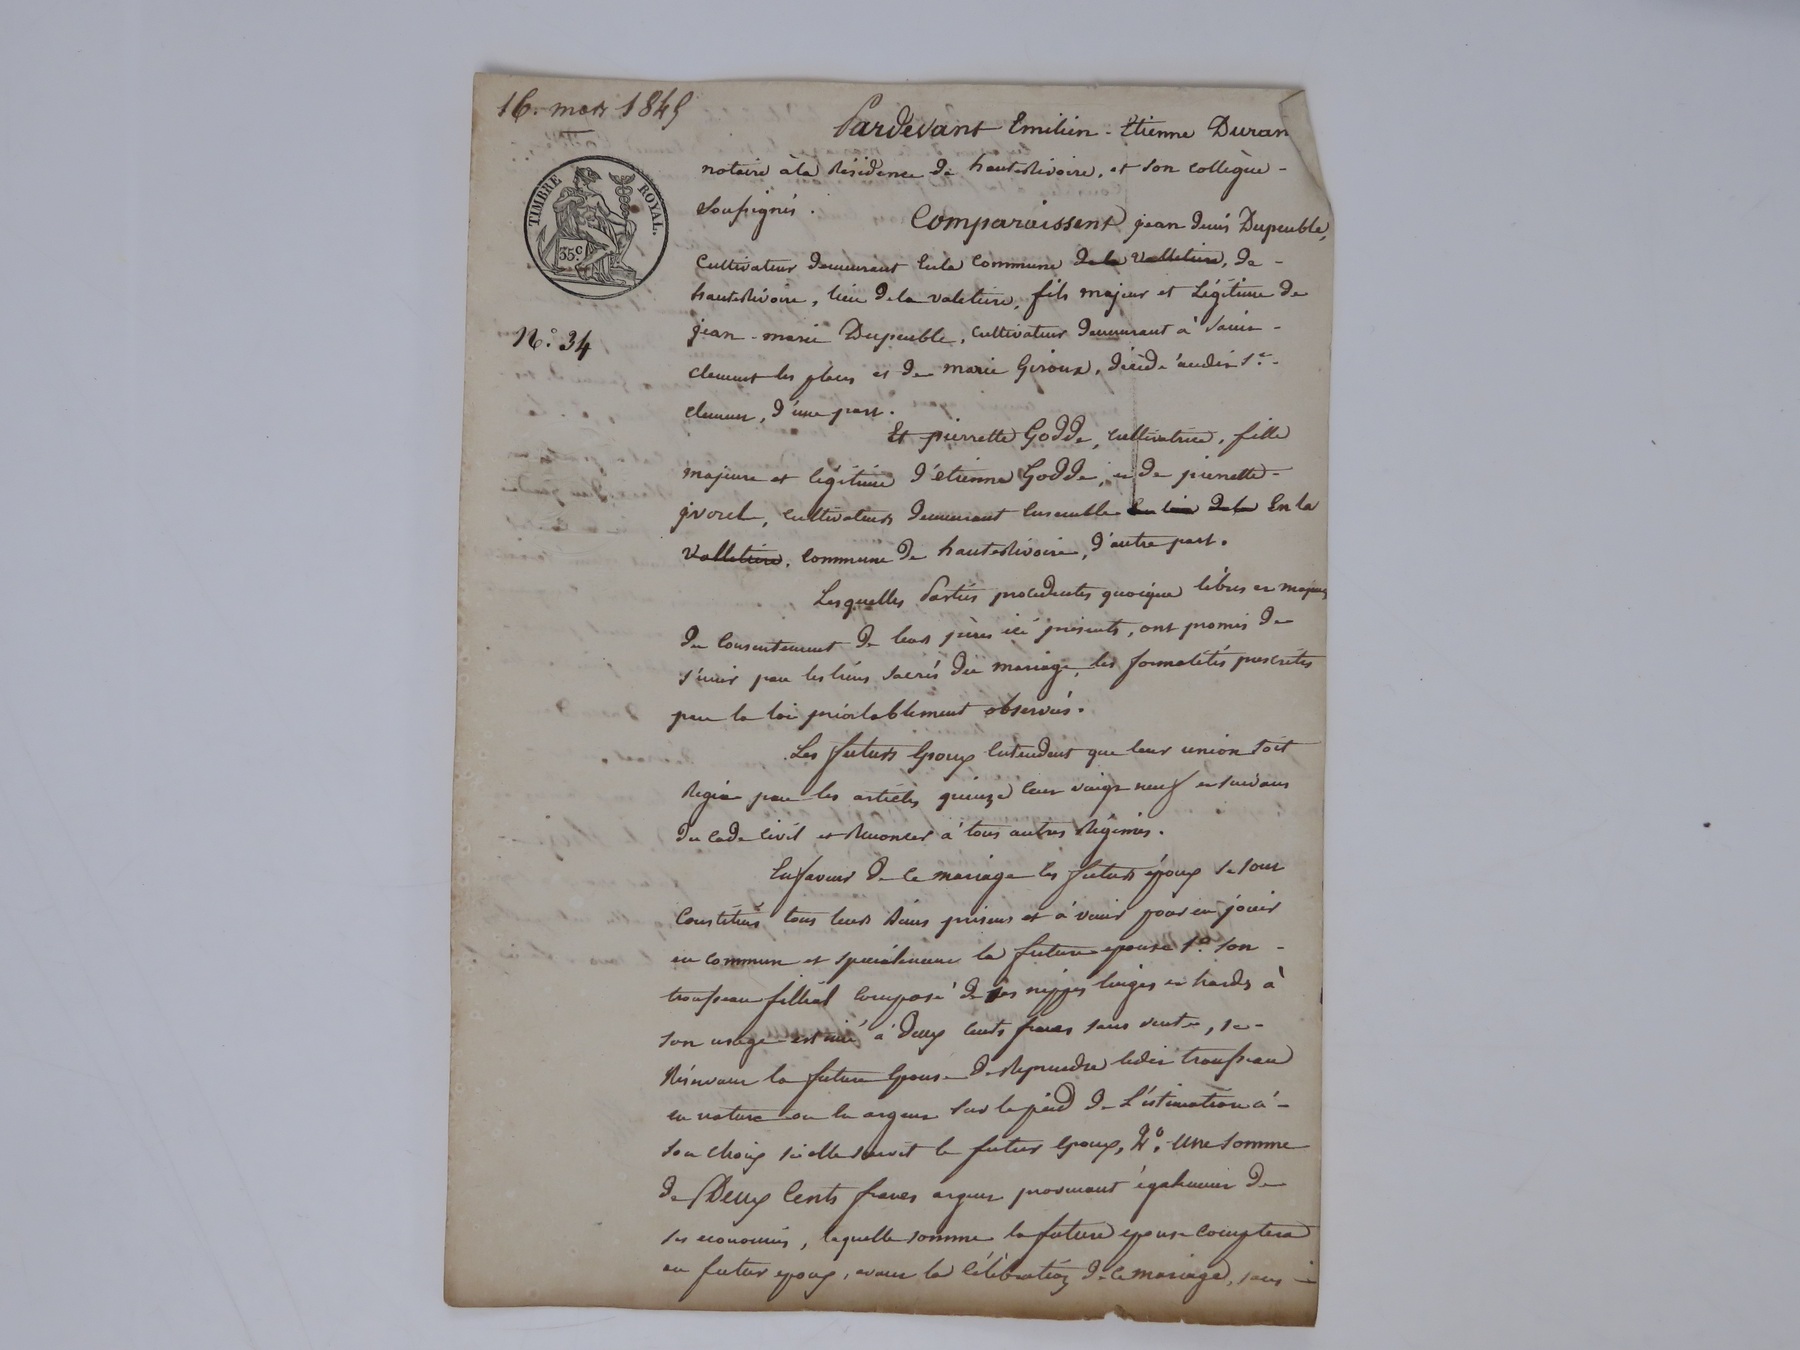 16. mars 1845
Pardevant Emilien - Etienne Duran
notaire à la Résidence de hauterivoire, et son collègue -
soussignés.
TIMBRE ROYAL.
35 c
Comparaissent jean denis Dupeuble,
Cultivateur demeurant en la commune de la Valletiere, de -
hauterivoire, lieu de la valetiere, fils majeur et Légitime de
N.° 34
jean - marie Dupeuble, cultivateur demeurant à Saint -
clement les places et de marie Giroux, décédé audit St -
clement, d'une part.
Et pierrette Godde, cultivatrice, fille
majeure et légitime d'étienne Godde, et de pierrette -
, cultivateurs demeurant Ensemble au lieu de la En la
Valletiere, commune de hauterivoire, d'autre part.
Lesquelles Parties procedentes quoique libres et majeurs
du consentement de leurs pères ici présents, ont promis de
s'unir par les liens sacrés du mariage, les formalités prescrites
par la loi préalablement observées.
Les futurs Epoux Entendent que leur union soit
Régie par les articles quinze cent vingt neuf et suivans
du code civil et Renoncer à tous autres Régimes.
En faveur de ce mariage les futurs époux se sont
Constitués tous leurs biens présens et à venir pour en jouir
en commun et spécialement la future epouse 1.° son -
trousseau fillial composé de ses nippes linges et hardes à
son usage estimé à deux cents francs sans vente, se -
Réservant la future Epouse de Reprendre ledit trousseau
en nature ou en argent sur le pied de L'éstimation à -
son choix si elle survit le futur époux, 2.° Une somme
de Deux Cents francs argent provenant également de
ses economies, laquelle somme la future epouse comptera
au futur epoux, avant la célébration de ce mariage, sans -